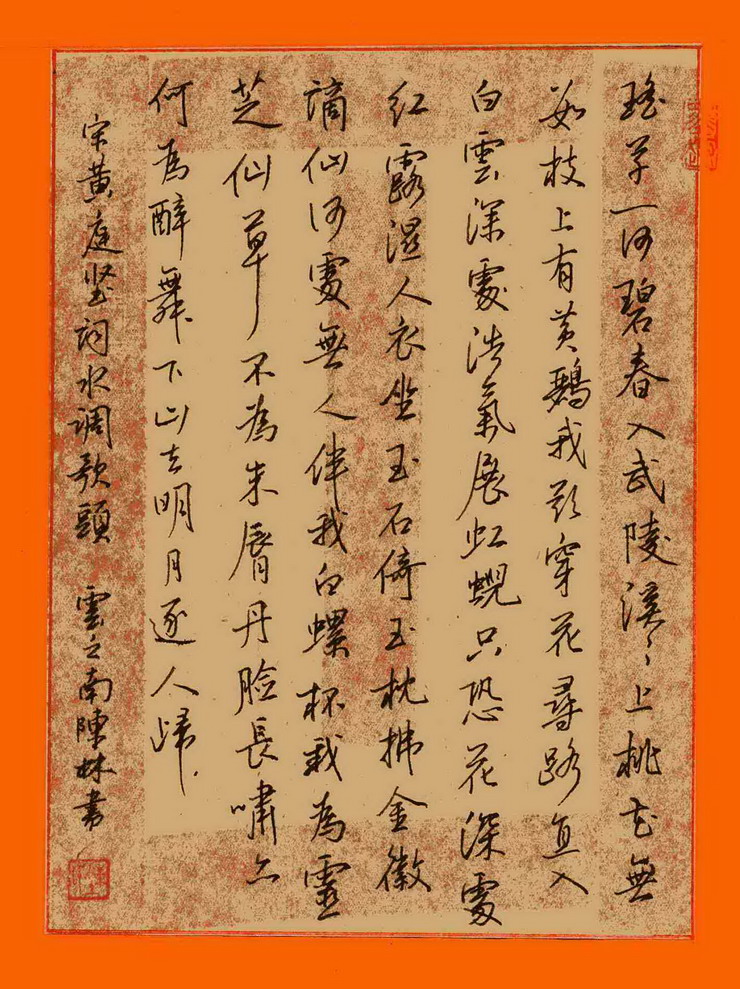 瑤草一何碧春入武陵溪〻上桃花無
數枝上有黄鸝我欲穿花尋路直入
白雲深處浩氣展虹蜺只恐花深處
红露湿人衣坐玉石倚玉枕拂金徽
謫仙何處無人伴我白螺杯我為靈
芝仙草不為朱脣丹脸長嘯亦
何為醉舞下山去明月逐人歸
宋黄庭坚词水调歌頭 雲之南陳林書